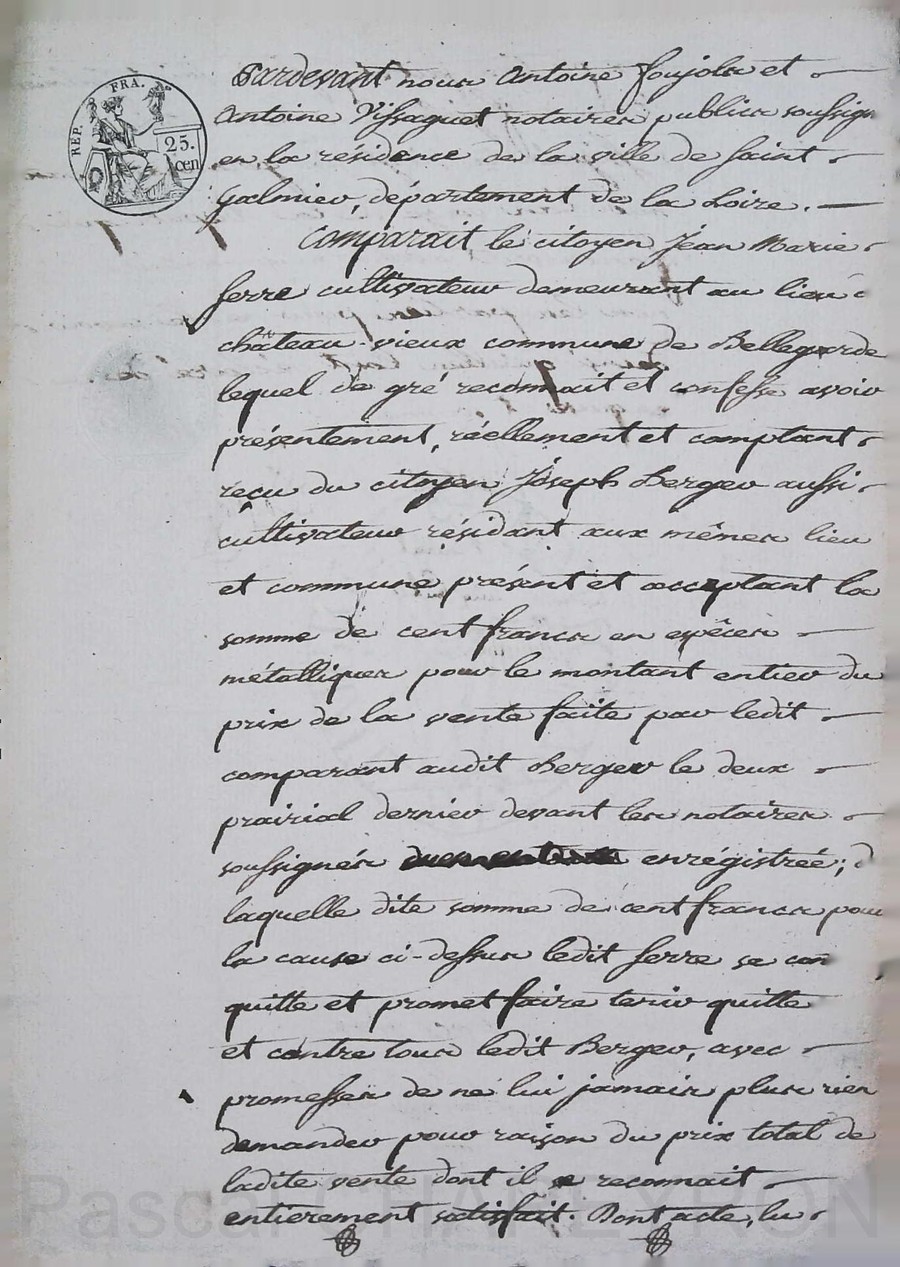 REP. FRA.
25.
cen
Pardevant nous Antoine foujols et
Antoine Vissaguet notaires publics soussign
en la résidence de la ville de Saint
galmier, département de la Loire.
Comparait le citoyen Jean Marie
ferre cultivateur demeurant au lieu
château-vieux commune de Bellegarde
lequel de gré reconnait et confesse avoir
présentement, réellement et comptant
reçu du citoyen Joseph Berger aussi
cultivateur résidant aux mêmes lieu
et commune présent et acceptant la
somme de cent francs en espêces
métalliques pour le montant entier du
prix de la vente faite par ledit
comparant audit Berger le deux
prairial dernier devant les notaires
soussignés enrégistrée; d
laquelle dite somme de cent francs pour
la cause ci-dessus ledit ferre se con
quitte et promet faire tenir quitte
et contre tous ledit Berger, avec
promesses de ne lui jamais plus rien
demander pour raison du prix total de
ladite vente dont il se reconnait
entierement satisfait. Dont acte, lu
Pascal CHAMEYRON